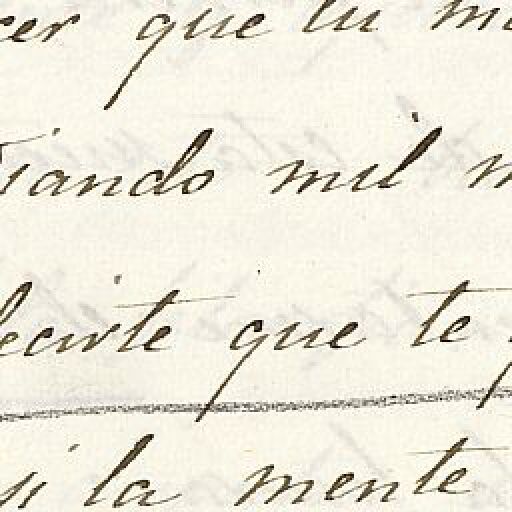 cer que tu m
iando mil m
decirte que te
si la mente